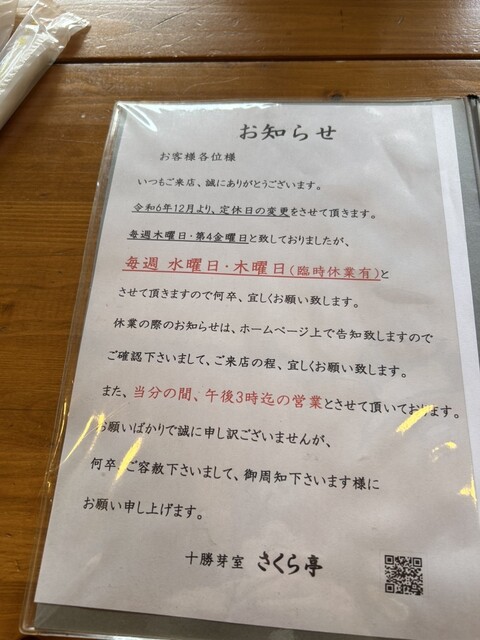 お知らせ
お客様各位様
いつもご来店、誠にありがとうございます。
令和6年12月より、定休日の変更をさせて頂きます。
毎週木曜日・第4金曜日と致しておりましたが、
毎週 水曜日・木曜日(臨時休業有)と
させて頂きますので何卒、宜しくお願い致します。
休業の際のお知らせは、ホームページ上で告知致しますので
ご確認下さいまして、ご来店の程、宜しくお願い致します。
また、当分の間、午後3時迄の営業とさせて頂いております。
お願いばかりで誠に申し訳ございませんが、
何卒、ご容赦下さいまして、御周知下さいます様に
お願い申し上げます。
十勝芽室 さくら亭